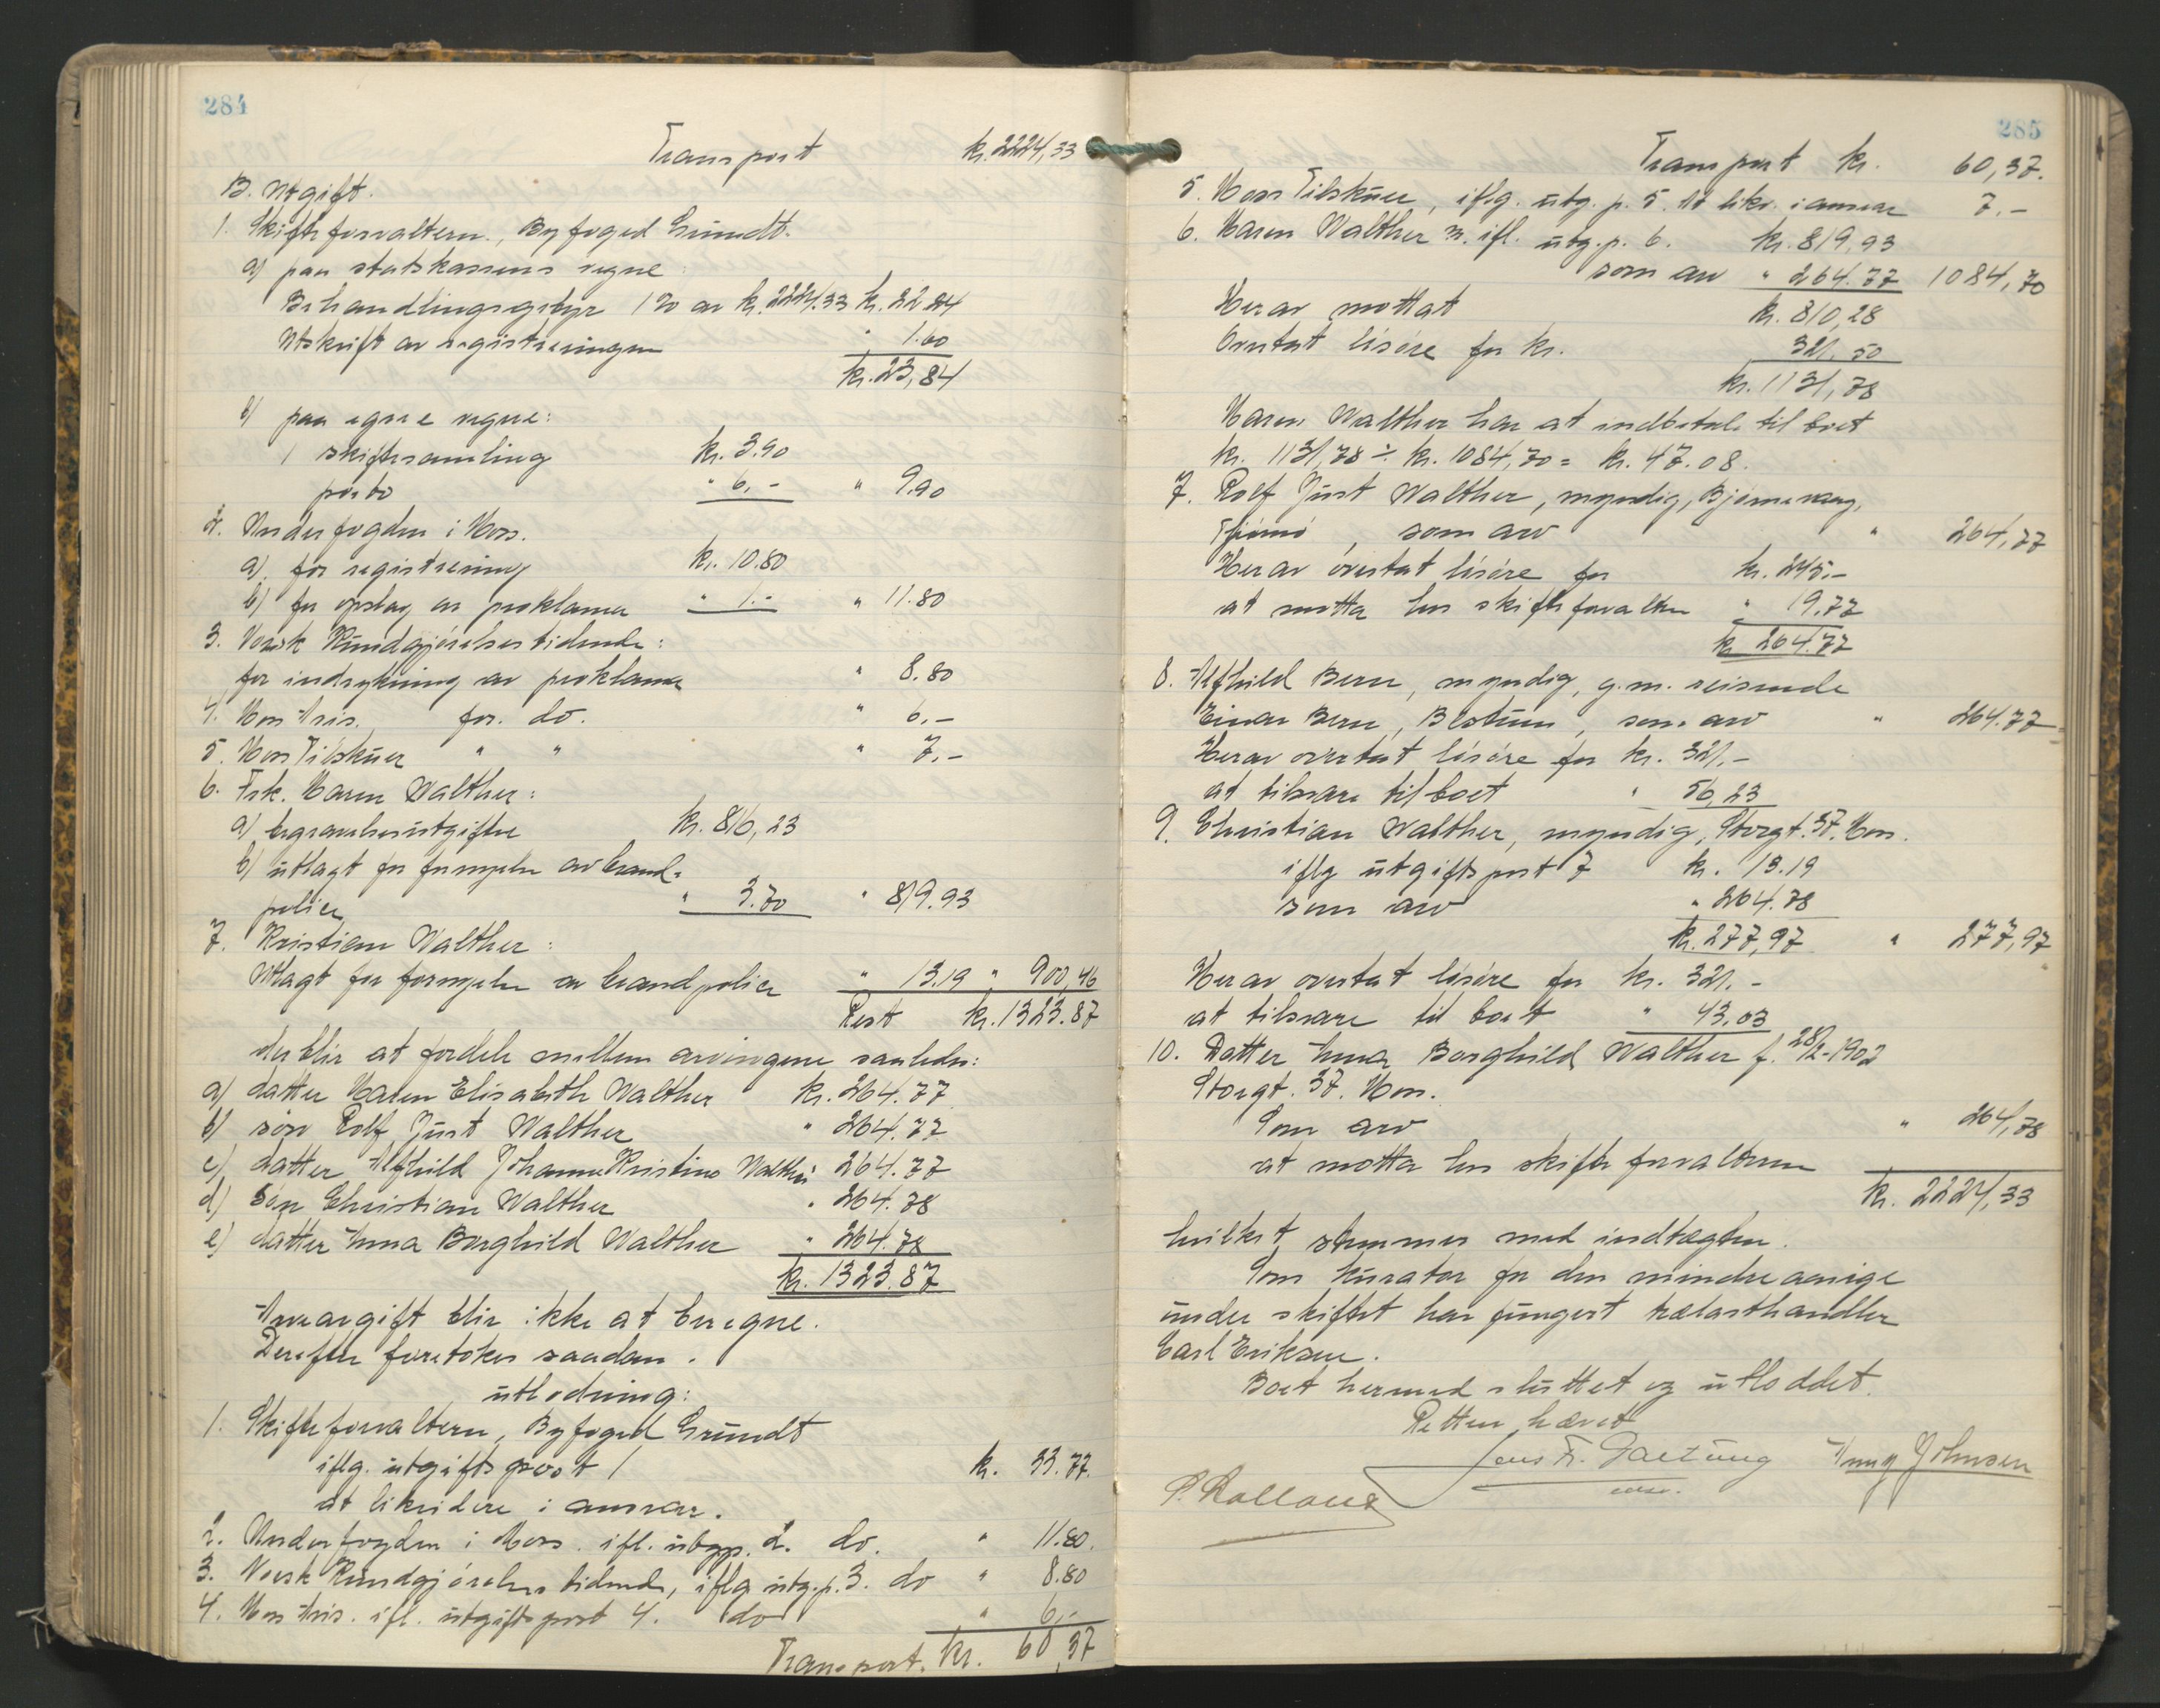 284
Transport kr. 2224,33
B. Utgift.
1. Skifteforvalteren, Byfoged Gründt.
a) paa statskassens regne:
Behandlingsgebyr 1 % av kr. 2224.33 kr. 22 24
Utskrift av registreringen " 1.60
kr. 23,84
b) paa egne regne:
1 skiftesamling kr. 3.90
porto " 6,- " 9.90
2. Underfogden i Moss.
a) for registrering kr. 10.80
b) for opslag av proklama " 1.- " 11.80
3. Norsk Kundgjørelsestidende:
for indrykning av proklama " 8.80
4. Moss Avis. for do. " 6.-
5. Moss Tilskuer " " " 7.-
6. Frk. Maren Walther:
a) begravelsesutgifter kr. 816,23
b) utlagt for fornyelse av brand-
police " 3.70 " 819.93
7. Kristian Walther:
Utlagt for fornyelse av brandpolice " 13.19 " 900,46
Rest kr. 1323.87
der blir at fordele mellem arvingene saaledes:
a) datter Maren Elisabeth Walther kr. 264.77
b) søn Rolf Just Walther " 264.77
c) datter Alfhild Johanne Kristine Walther 264.77
d) Søn Christian Walther " 264.78
e) datter Anna Borghild Walther " 264.78
kr. 1323.87
Arveavgift blir ikke at beregne.
Derefter foretokes saadan
utlodning:
1. Skifteforvalteren, Byfoged Gründt
iflg. utgiftspost 1 kr. 33.77.
at likvidere i ansvar.
2. Underfogden i Moss. ifl. utgp. 2. do. " 11.80.
3. Norsk Kundgjørelsestidende, iflg utg.p. 3. do " 8.80
4. Moss Avis. ifl. utgiftspost 4. do " 6,-
Transport. kr. 60,37
285
Transport kr. 60,37.
5. Moss Tilskuer, iflg. utg. p. 5. At likv. i ansvar 7.-
6. Maren Walther m. ifl. utg.p. 6. kr. 819,93
som arv " 264.77 1084,70
Herav mottat kr. 810,28
Overtat løsøre for kr. 321.50
kr. 1131,78
Maren Walther har at indbetale til boet
kr. 1131,78 ÷ kr. 1084,70 = kr. 47.08.
7. Rolf Just Walther, myndig, Bjørnevaag,
Tjømø, som arv " 264,77
Herav overtat løsøre for kr. 245.-
at motta hos skifteforvalteren " 19.77
kr 264.77
8. Alfhild Bern, myndig, g.m. reisende
Einar Bern, Bestum, som arv " 264.77
Herav overtat løsøre for kr. 321.-
at tilsvare til boet " 56,23
9. Christian Walther, myndig, Storgt. 37. Moss.
iflg utgiftspost 7 kr. 13.19
som arv " 264.78
kr. 277,97 " 277,97
Herav overtat løsøre for kr. 321.-
at tilsvare til boet " 43,03
10. Datter Anna Borghild Walther f. 28/2-1902
Storgt. 37. Moss.
Som arv " 264,78
at motta hos skifteforvalteren
kr. 2224,33
hvilket stemmer med indtægten.
Som kurator for den mindreaarige
under skiftet har fungert trælasthandler
Carl Eriksen.
Boet hermed sluttet og utloddet.
Retten hævet
Jens Fr. Anny Johnsen